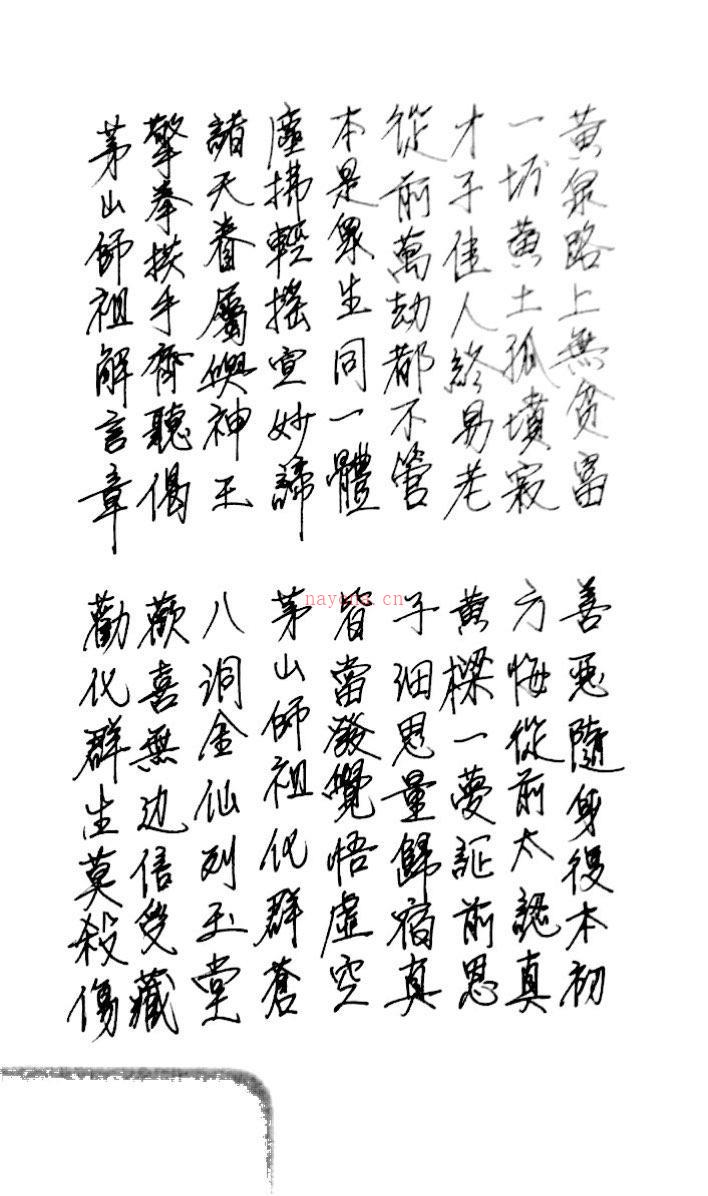 黃泉路上無貧富 善惡隨身復本初
一坵黃土孤墳寂 方悔從前太認真
才子佳人終易老 黃樑一夢証前思
從前萬劫都不管 子細思量歸宿真
本是眾生同一體 皆當發覺悟虛空
塵拂輕搖宣妙諦 茅山師祖化群蒼
諸天眷屬與神王 八洞金仙列玉堂
擎拳拱手齊聽偈 歡喜無边信受藏
茅山師祖解言章 勸化群生莫殺傷
nayona.cn